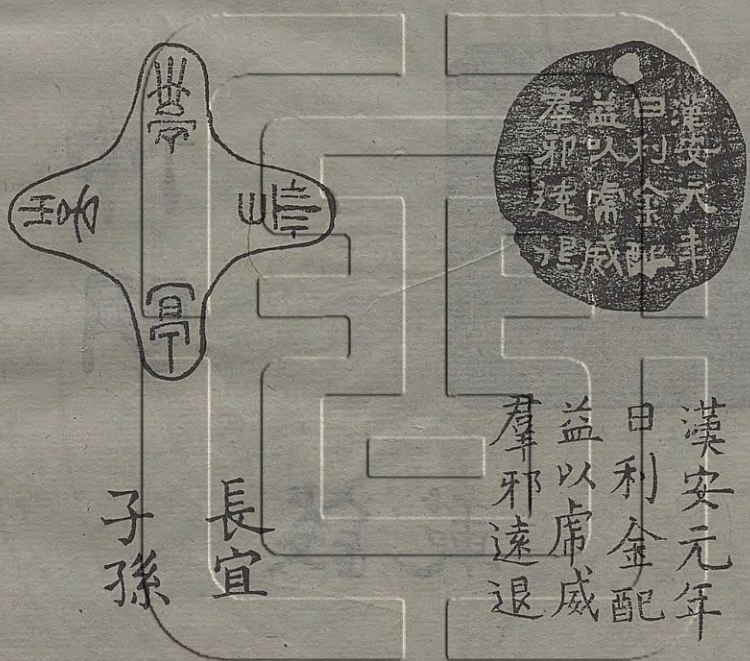 漢安元年
日利金配
益以虎威
羣邪遠退
漢安元年
日利金配
益以虎威
羣邪遠退
長宜
子孫